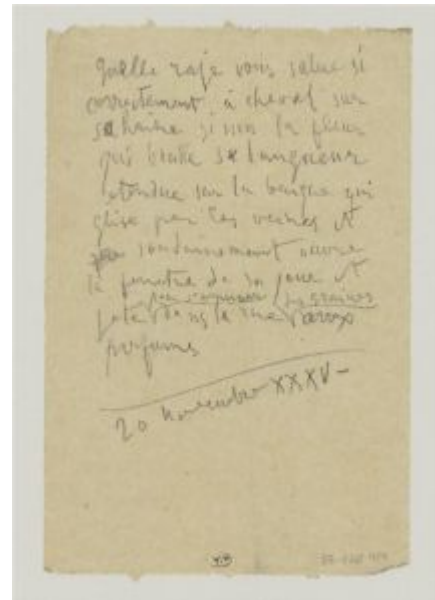 quelle raje vous salue si
correctement à cheval sur
sa haine si non la fleur
qui brûle sa langueur
etendue sur la barque qui
glise par les veines et
soudainement ouvre
la fenetre de sa joue et
jete dans la rue
les graines
parfums
20 novembre XXXV-